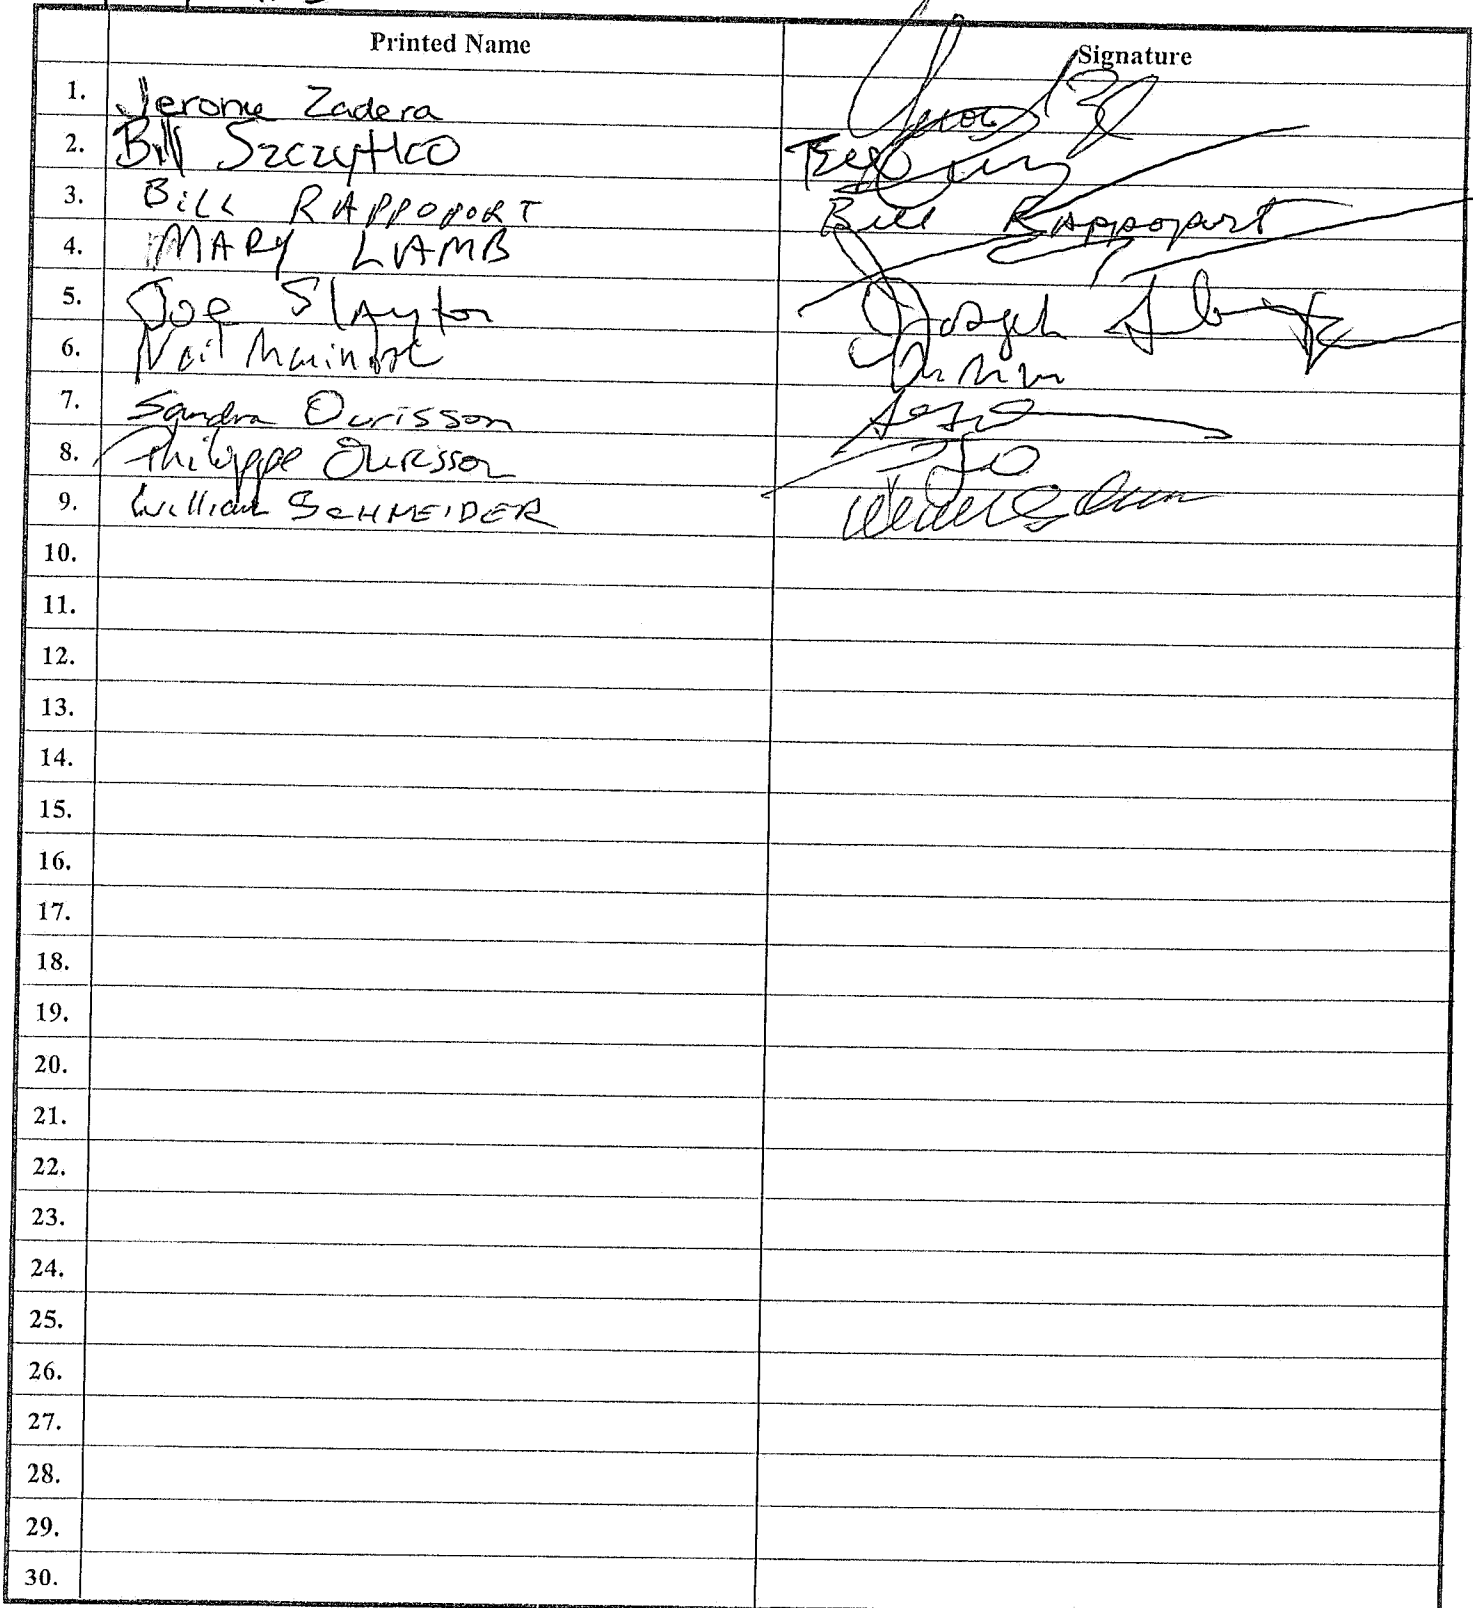 Printed Name Signature
1. Jerome Zadera
2. Bill Szczytko
3. Bill RAPPOPORT Bill Rappoport
4. MARY LAMB
5. Joe Slayton Joseph
6. Neil
7. Sandra Ourisson
8. Philippe Ourisson
9. William SCHNEIDER
10.
11.
12.
13.
14.
15.
16.
17.
18.
19.
20.
21.
22.
23.
24.
25.
26.
27.
28.
29.
30.